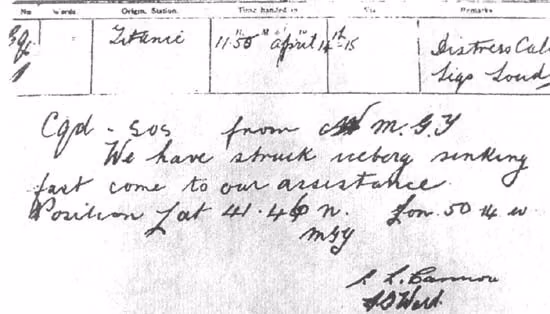 No. Words. Origin. Station. Time handed in Via Remarks
Titanic 11.50 April 14th-15 Distress Call
Sigs Loud
Cqd - SOS from M.G.Y
We have struck iceberg sinking
fast come to our assistance.
Position Lat 41.46 n. Lon. 50.14 w.
MGY